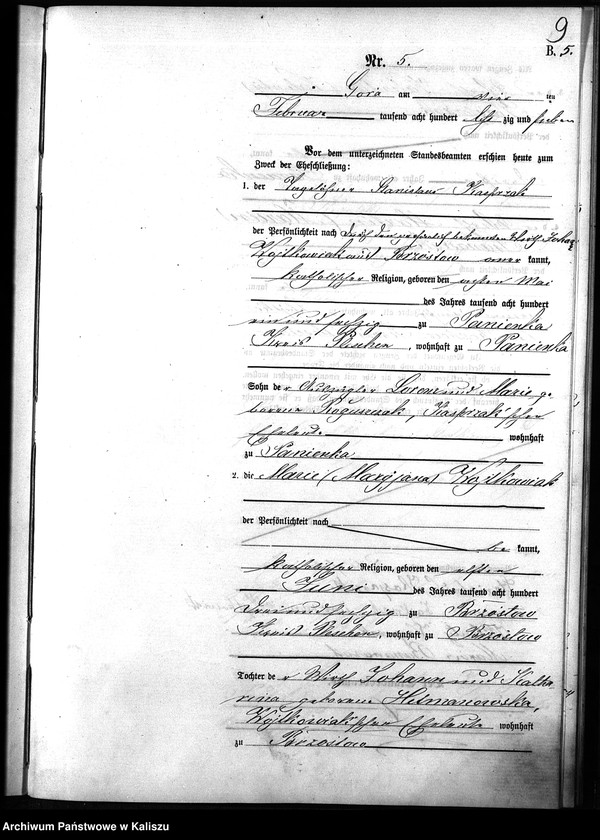 9
B. 5.
Nr. 5.
Gora am vier ten
Februar tausend acht hundert acht zig und sieben
Vor dem unterzeichneten Standesbeamten erschien heute zum
Zweck der Eheschließung:
1. der Tagelöhner Stanislaus Kasprzak
der Persönlichkeit nach durch den persönlich bekannten Wirth Johann
Wojtkowiak aus Brzostow aner kannt,
katholischer Religion, geboren den achten Mai
des Jahres tausend acht hundert
ein und sechzig zu Panienka
Kreis Pleschen, wohnhaft zu Panienka
Sohn der Auszügler Lorenz und Marie ge
borene Kasprzak'schen
Eheleute wohnhaft
zu Panienka
2. die Marie (Maryjana) Wojtkowiak
der Persönlichkeit nach
be kannt,
katholischer Religion, geboren den elften
Juni des Jahres tausend acht hundert
drei und sechzig zu Brzostow
Kreis Pleschen, wohnhaft zu Brzostow
Tochter der Wirth Johann und Katha
rina geborene Hetmanowska,
Wojtkowiak'schen Eheleute wohnhaft
zu Brzostow
Archiwum Państwowe w Kaliszu